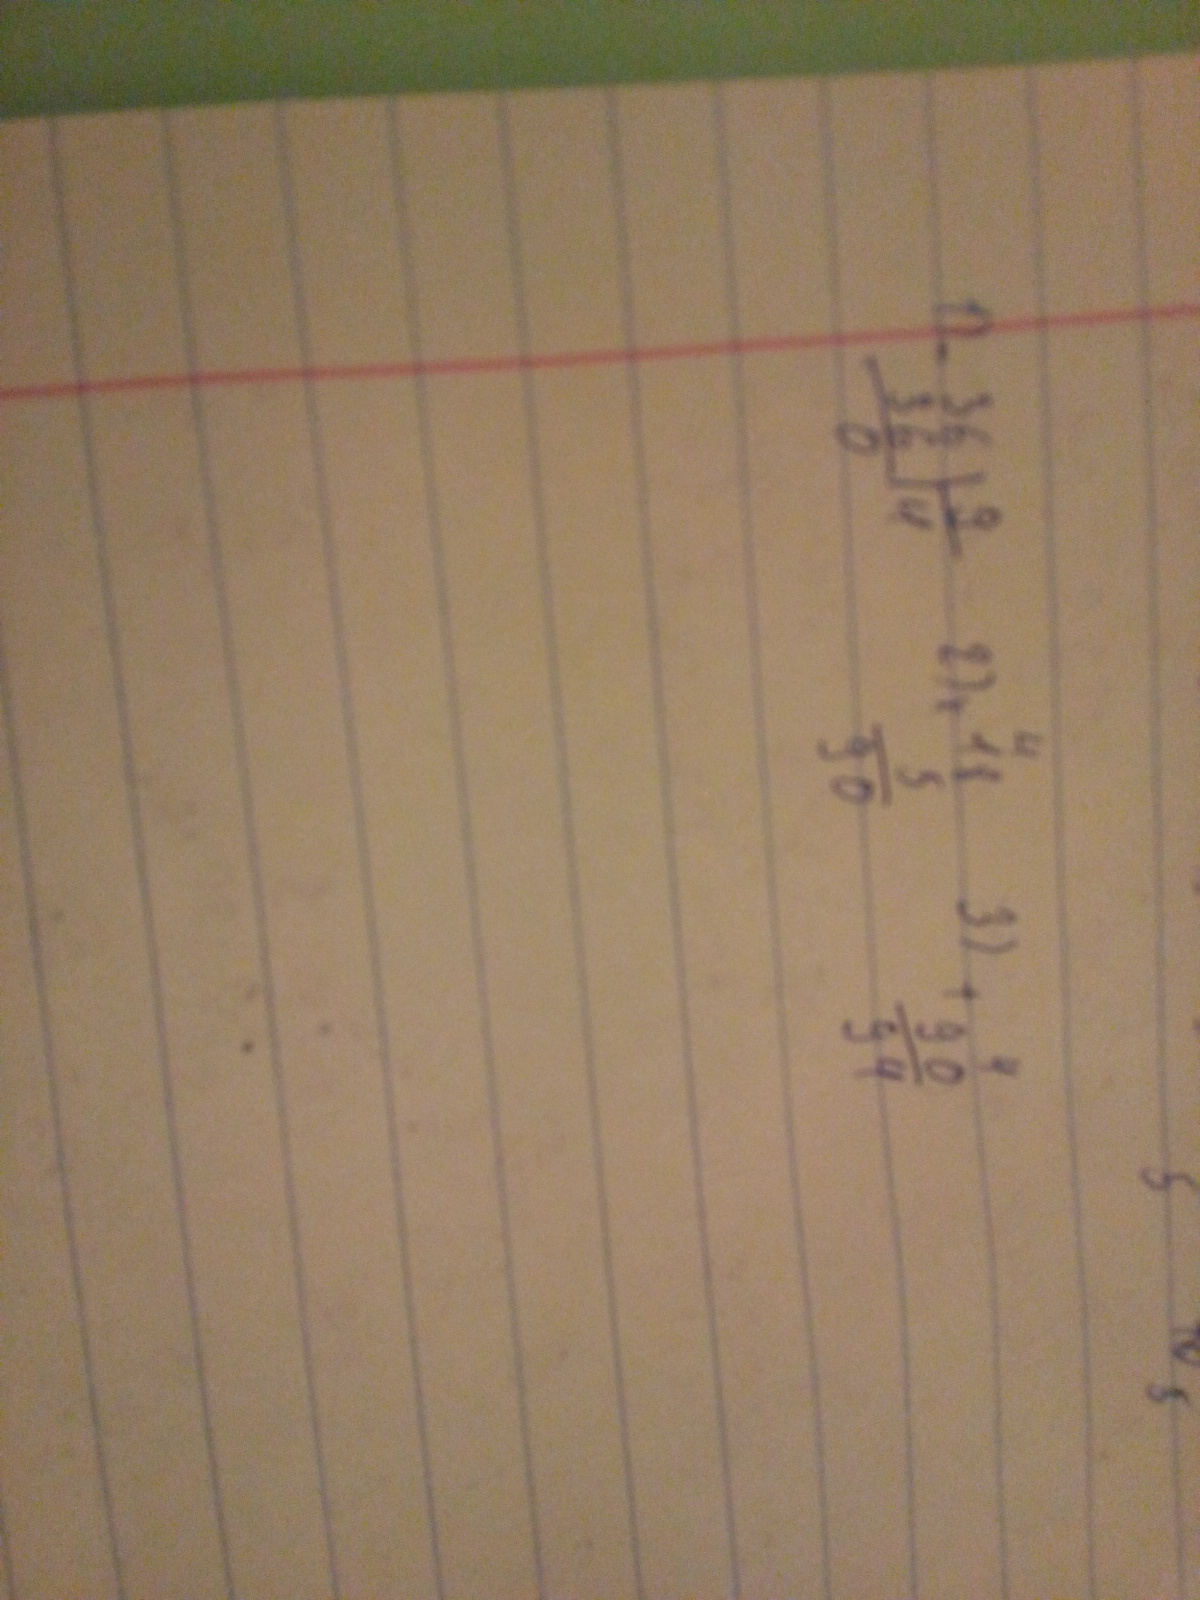 4
1) - 36 | 9 2) x 18 3) + 4
36 | 4 5 90
0 90 94